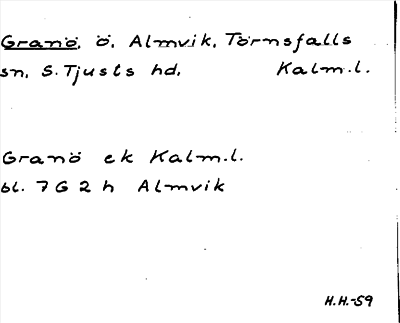 Granö, ö, Almvik, Törnsfalls
sn, S. Tjusts hd, Kalm.l.
Granö ek Kalm.l.
bl. 7 G 2 h Almvik
H.H.-59